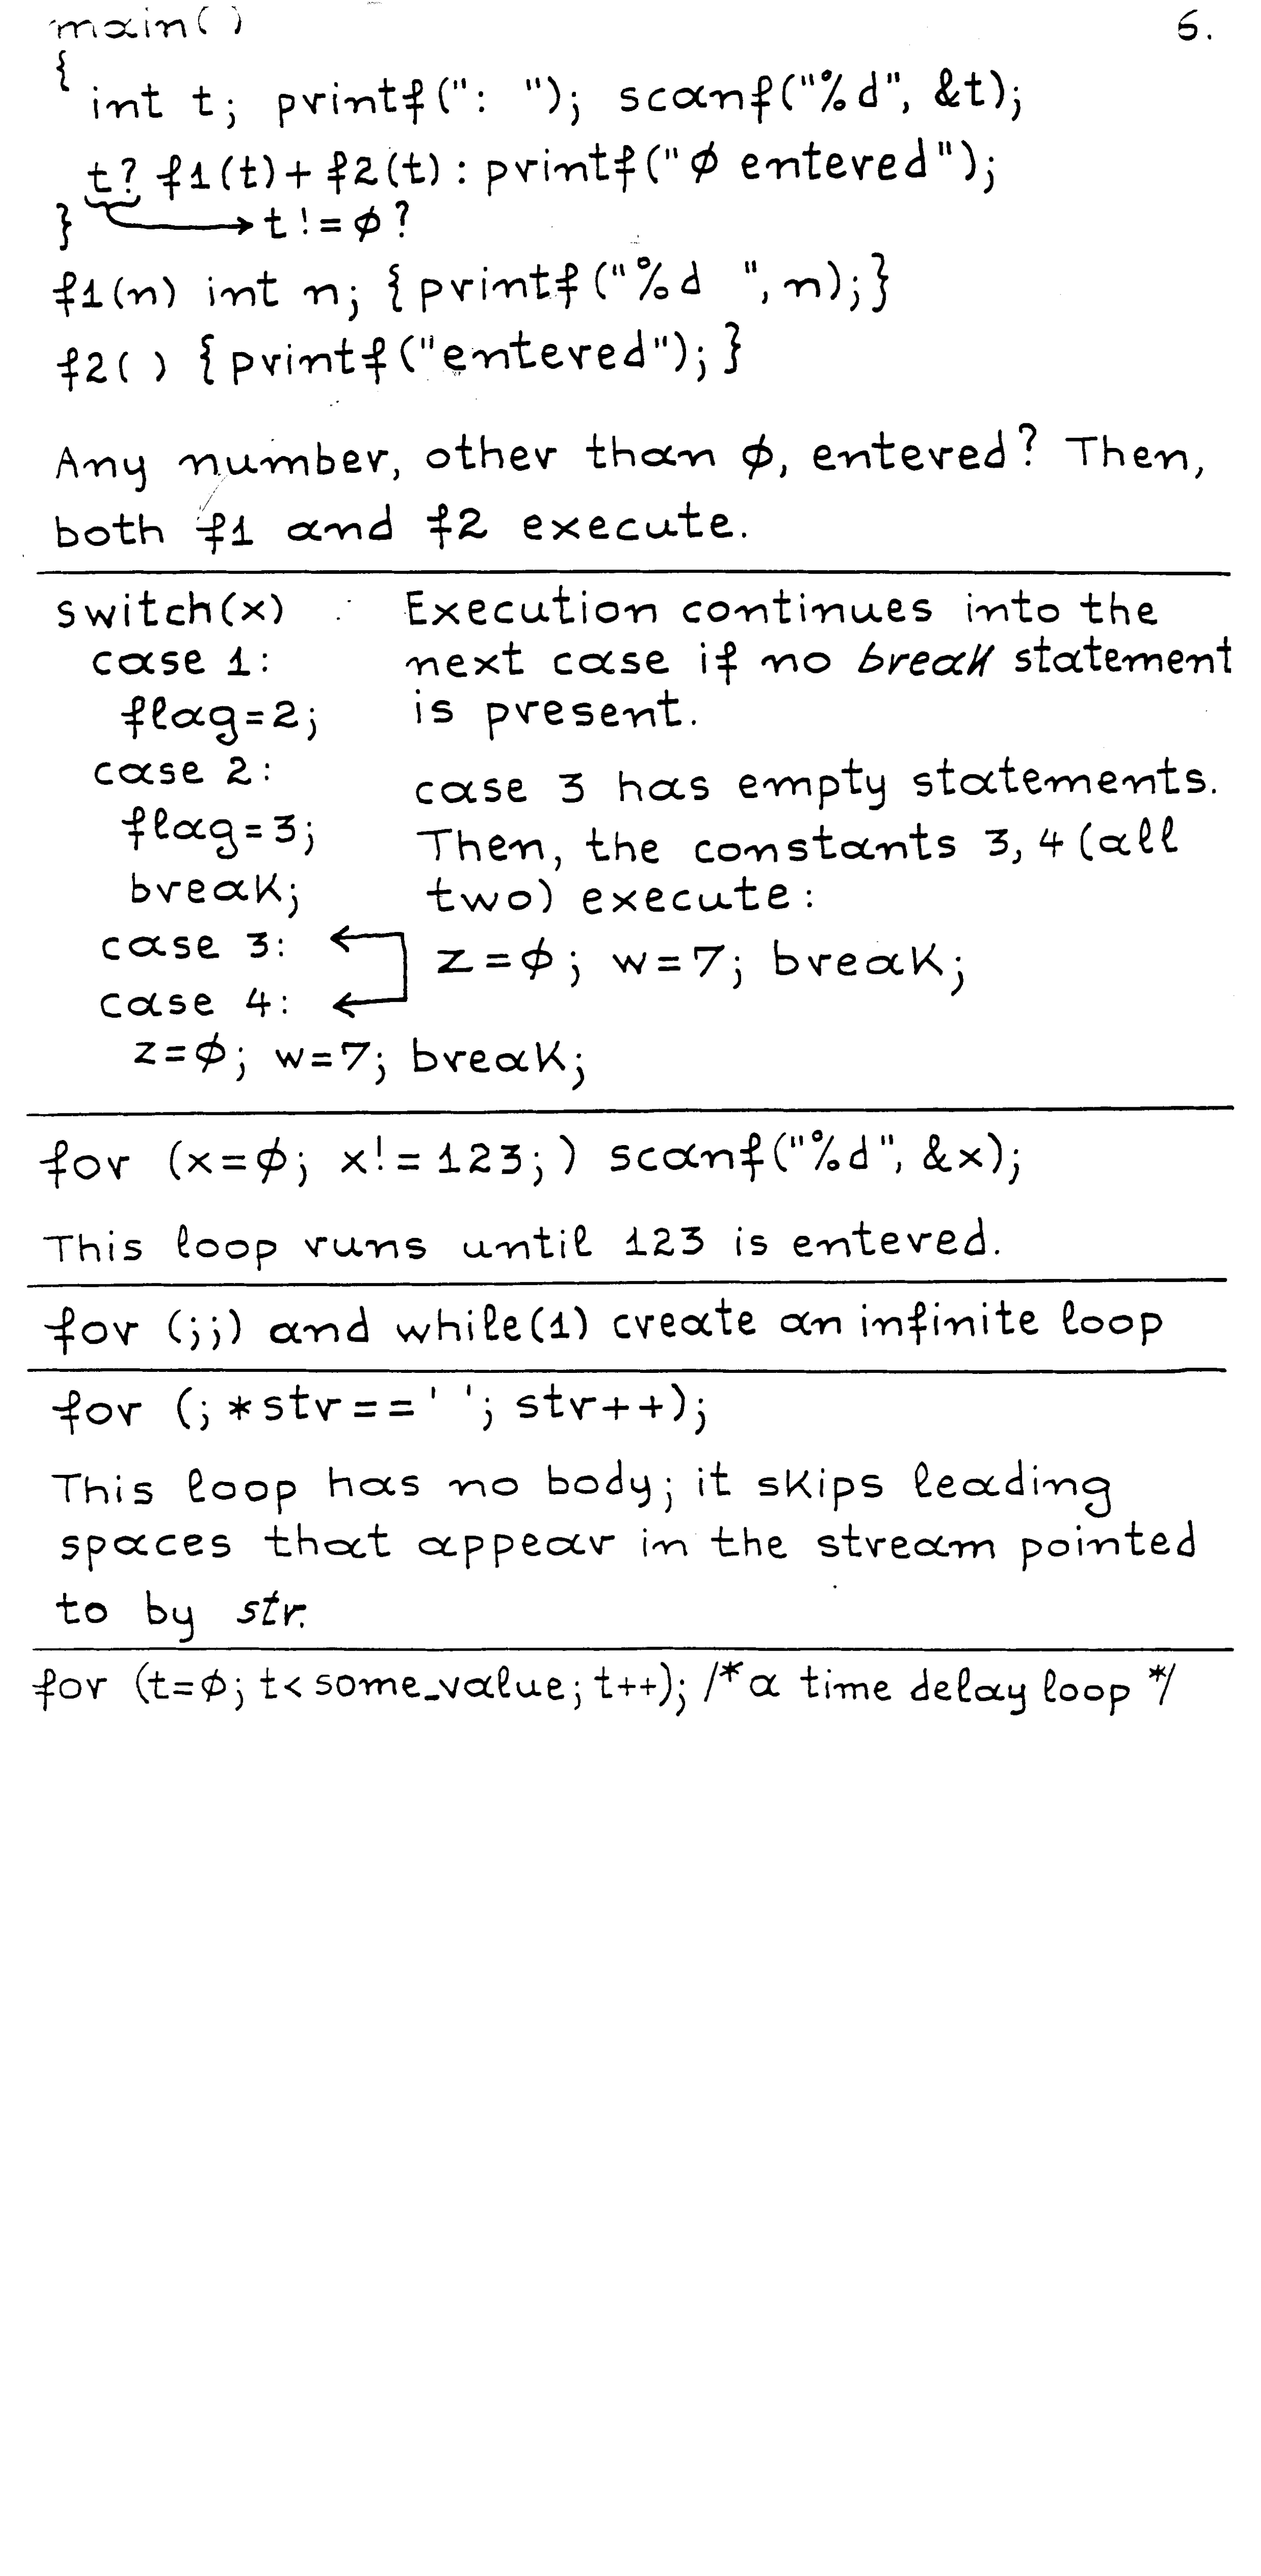 main()
6.
{
int t; printf(": "); scanf("%d", &t);
t? f1(t)+f2(t): printf("ø entered");
} t!=ø?
f1(n) int n; {printf("%d ", n);}
f2() {printf("entered");}
Any number, other than ø, entered? Then,
both f1 and f2 execute.
switch(x)
case 1:
flag=2;
case 2:
flag=3;
break;
case 3:
case 4:
z=ø; w=7; break;
Execution continues into the
next case if no break statement
is present.
case 3 has empty statements.
Then, the constants 3, 4 (all
two) execute:
z=ø; w=7; break;
for (x=ø; x!=123;) scanf("%d", &x);
This loop runs until 123 is entered.
for (;;) and while(1) create an infinite loop
for (; *str==' '; str++);
This loop has no body; it skips leading
spaces that appear in the stream pointed
to by str.
for (t=ø; t< some_value; t++); /* a time delay loop */